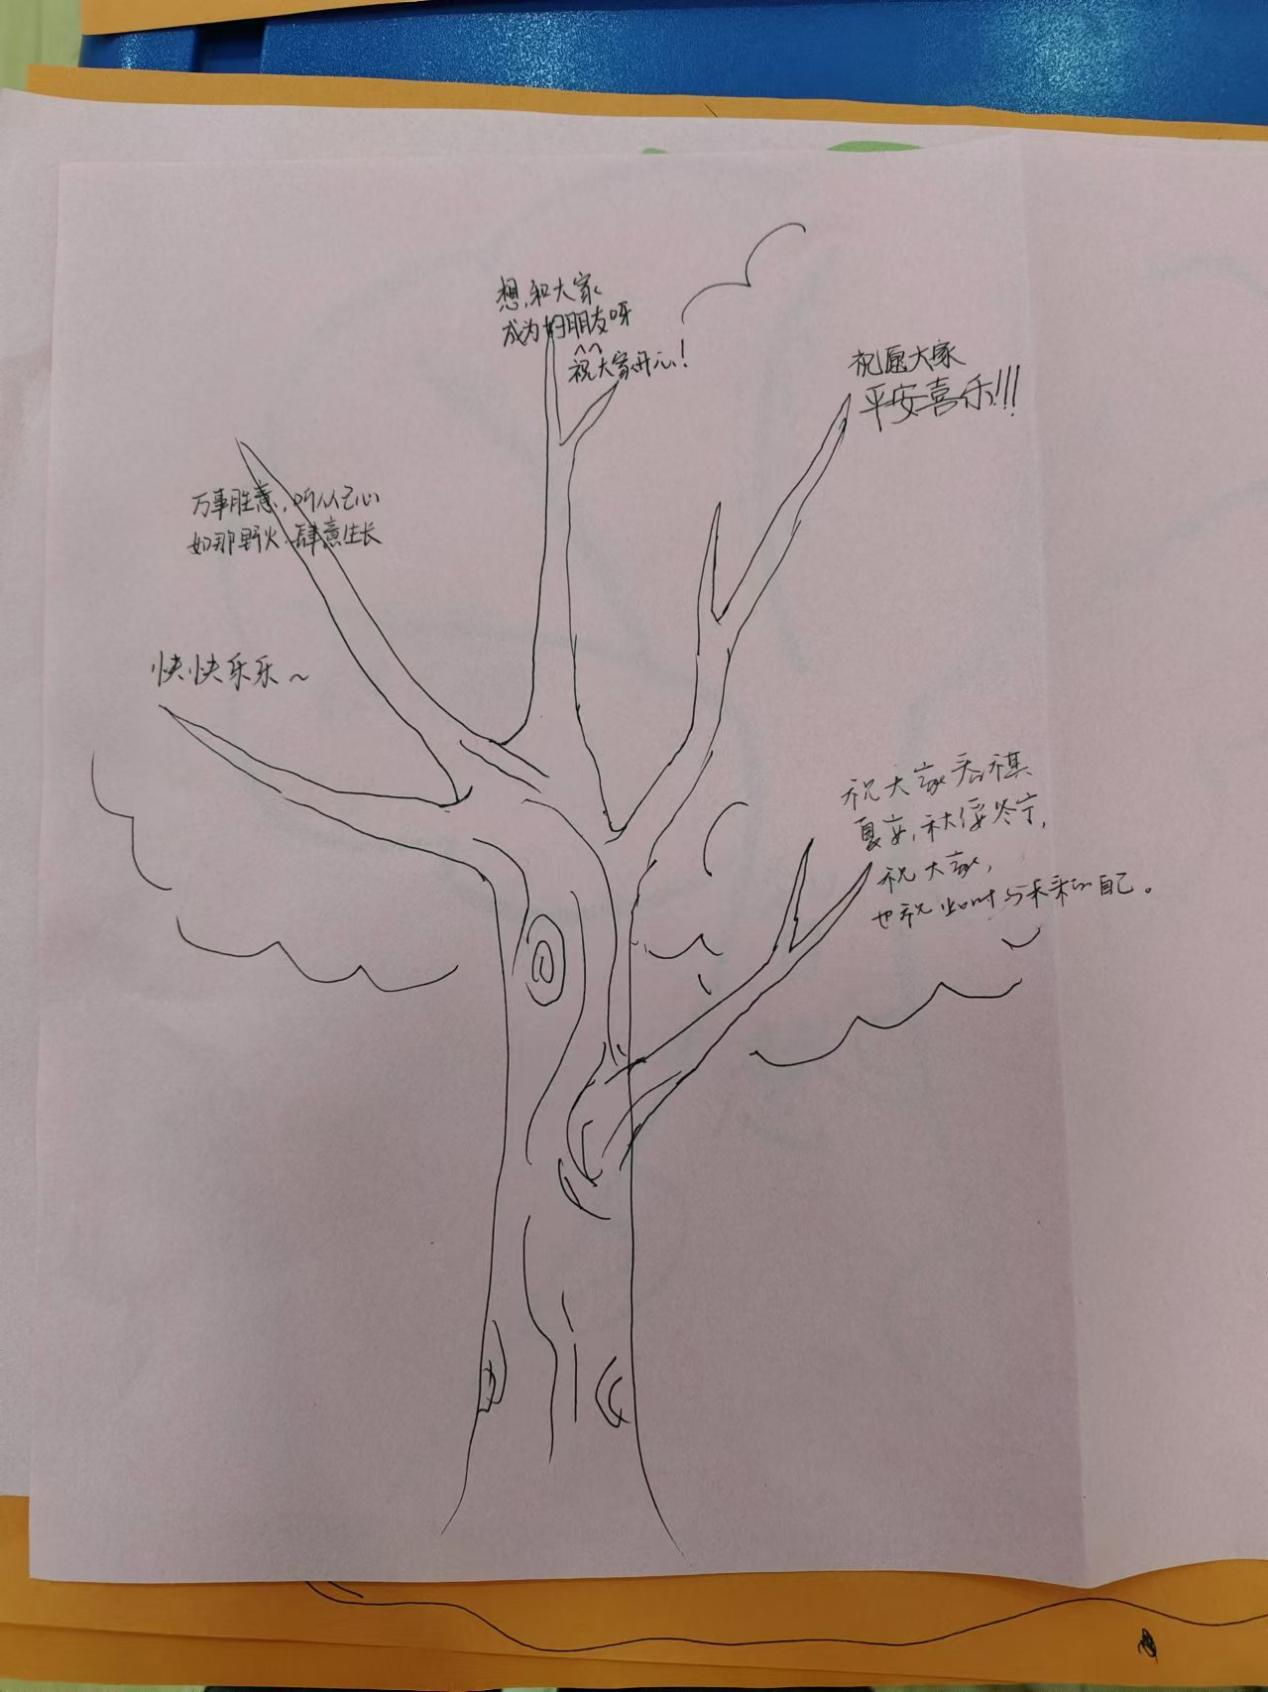 想和大家
成为好朋友呀
^^
祝大家开心!
祝愿大家
平安喜乐!!!
万事胜意,听从己心
如那野火,肆意生长
快快乐乐~
祝大家春祺
夏安,秋绥冬宁,
祝大家,
也祝此时与未来的自己。